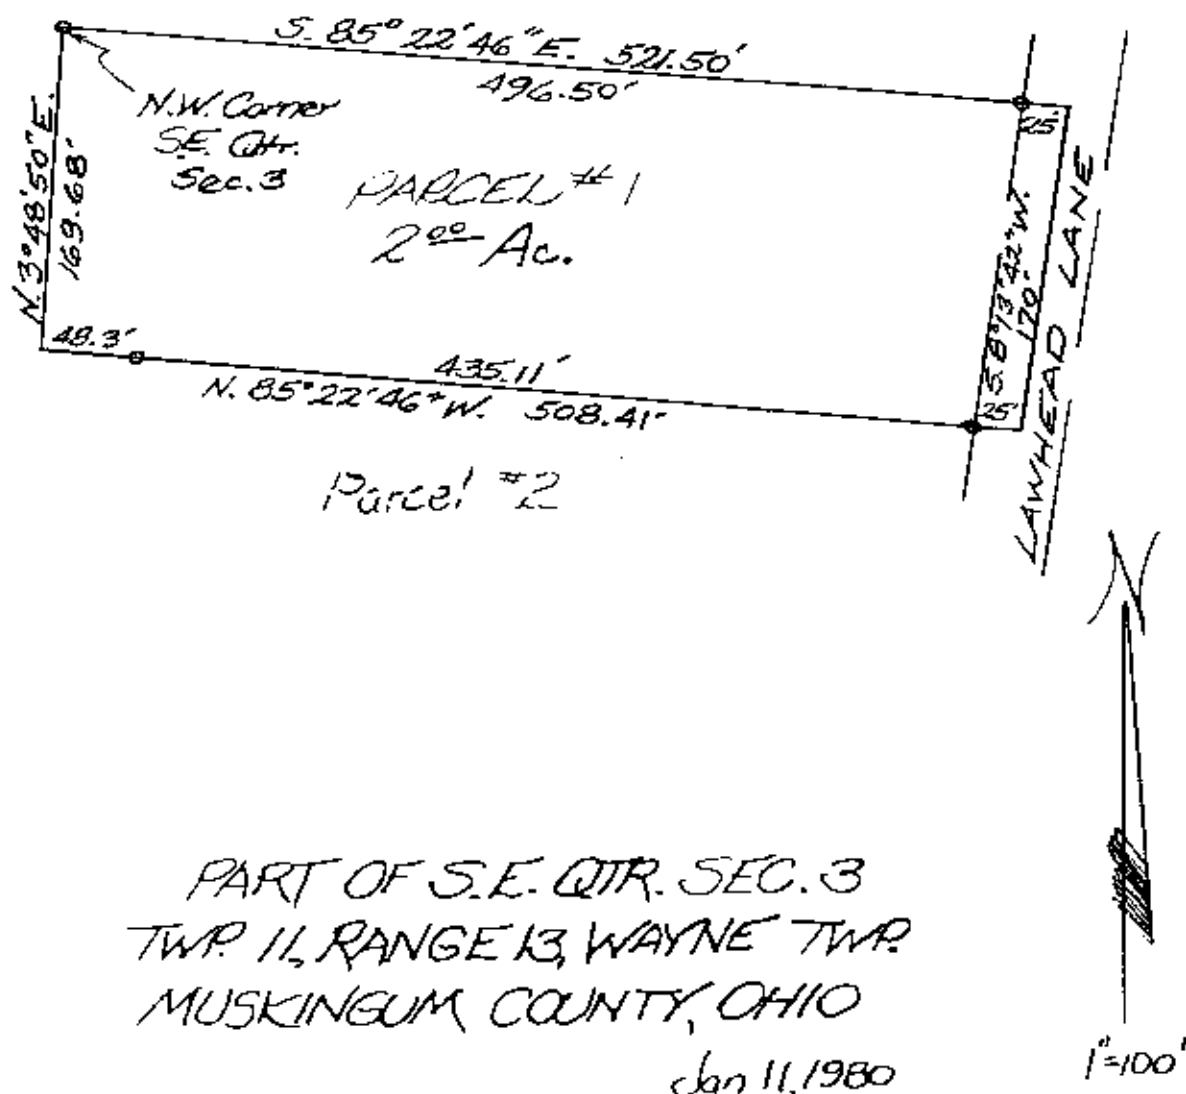 S. 85° 22' 46" E. 521.50'
496.50'
25'
N.W. Corner
S.E. Qtr.
Sec. 3
N. 3° 48' 50" E.
169.68'
PARCEL #1
2.00 Ac.
S. 8° 13' 42" W.
170'
LAWHEAD LANE
48.3'
435.11'
25'
N. 85° 22' 46" W. 508.41'
Parcel #2
N
PART OF S.E. QTR. SEC. 3
TWP. 11, RANGE 13, WAYNE TWP.
MUSKINGUM COUNTY, OHIO
Jan 11, 1980
1"=100'